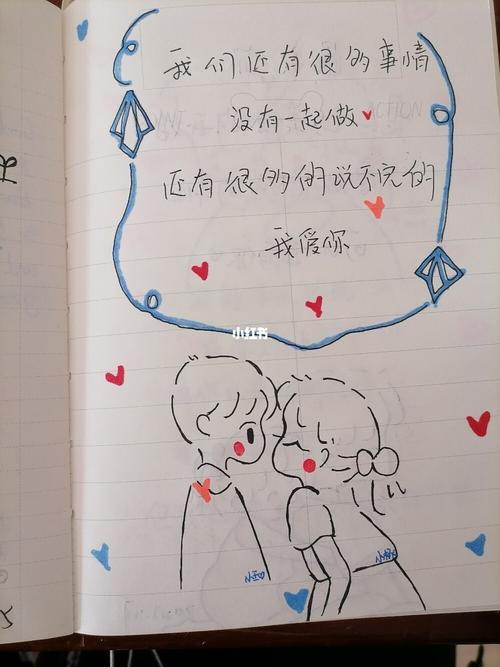 我们还有很多事情
没有一起做
还有很多的说不完的
我爱你
小红书